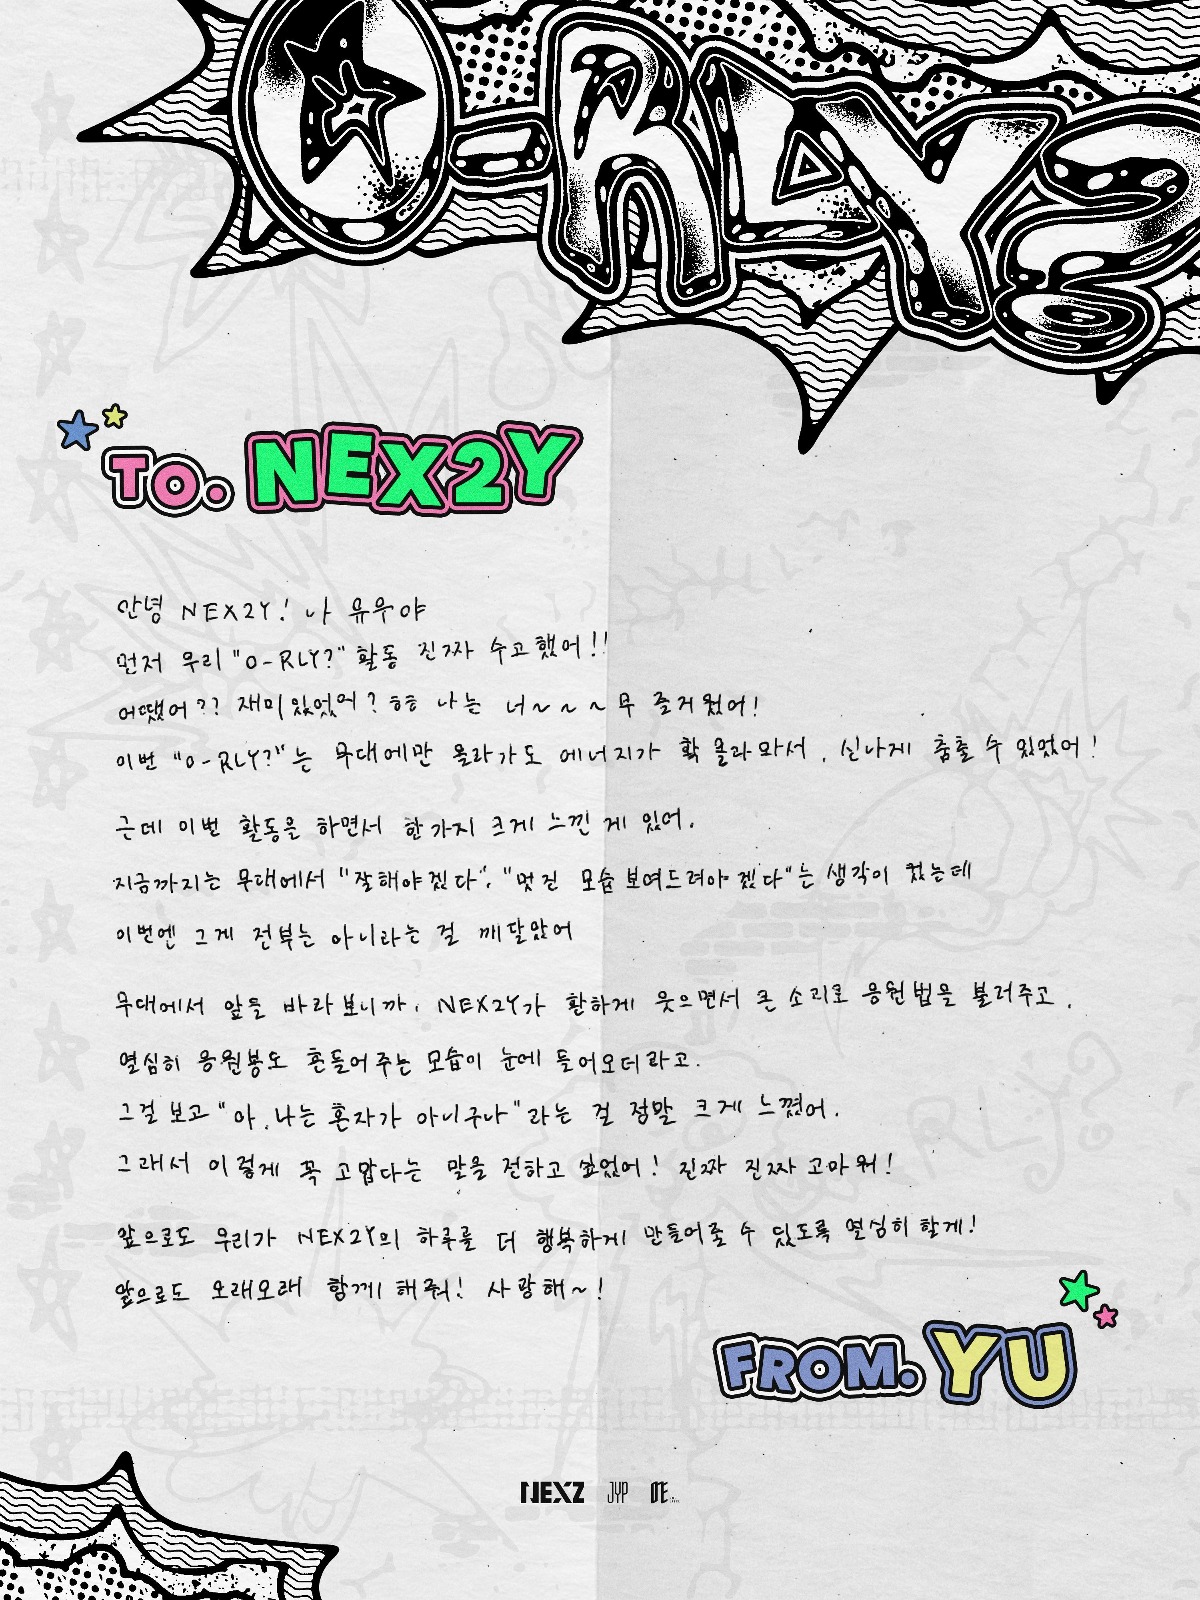 O-RLY?
TO. NEX2Y
안녕 NEX2Y! 나 유우야
먼저 우리 "O-RLY?" 활동 진짜 수고했어!!
어땠어?? 재미있었어? ㅎㅎ 나는 너~~~무 즐거웠어!
이번 "O-RLY?"는 무대에만 올라가도 에너지가 확 올라와서, 신나게 춤출 수 있었어!
근데 이번 활동을 하면서 한 가지 크게 느낀 게 있어.
지금까지는 무대에서 "잘해야겠다", "멋진 모습 보여드려야겠다"는 생각이 컸는데
이번엔 그게 전부는 아니라는 걸 깨달았어
무대에서 앞을 바라보니까, NEX2Y가 환하게 웃으면서 큰 소리로 응원법을 불러주고,
열심히 응원봉도 흔들어주는 모습이 눈에 들어오더라고.
그걸 보고 "아, 나는 혼자가 아니구나"라는 걸 정말 크게 느꼈어.
그래서 이렇게 꼭 고맙다는 말을 전하고 싶었어! 진짜 진짜 고마워!
앞으로도 우리가 NEX2Y의 하루를 더 행복하게 만들어줄 수 있도록 열심히 할게!
앞으로도 오래오래 함께 해줘! 사랑해~!
FROM. YU
NEXZ JYP